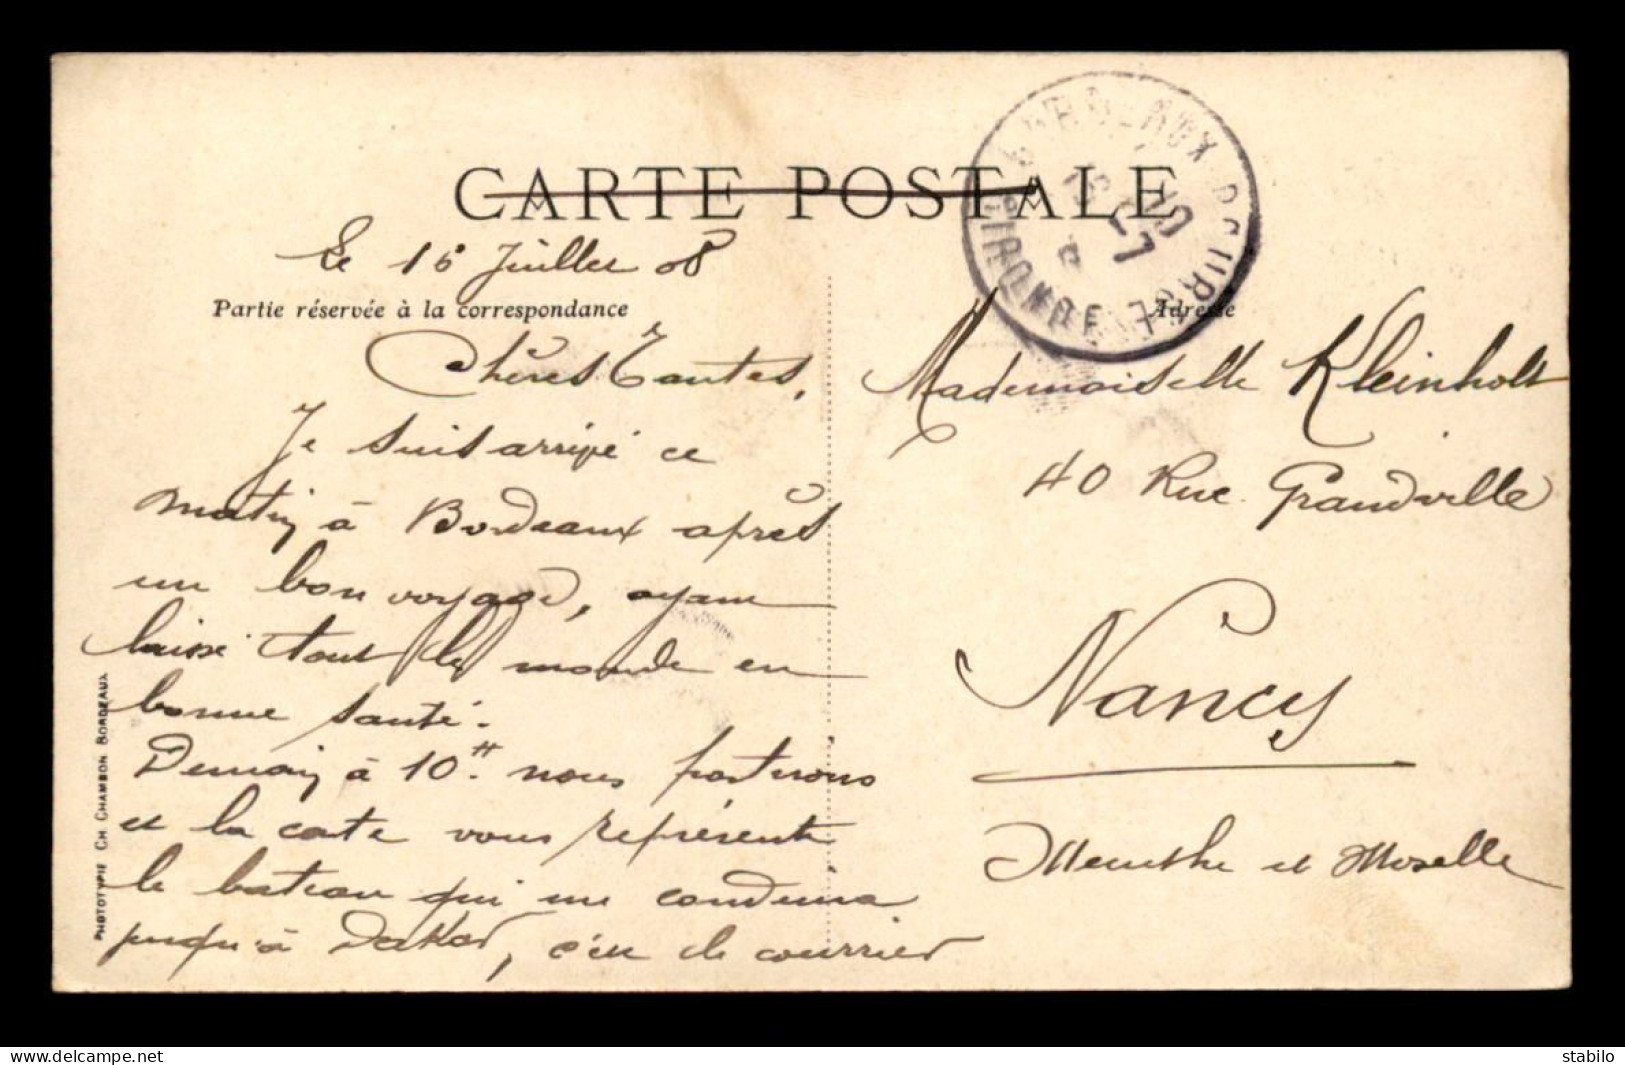 CARTE POSTALE
Le 15 Juillet 08
Partie réservée à la correspondance
Adresse
Chères Tantes,
Je suis arrivé ce
matin à Bordeaux après
un bon voyage, ayant
laissé tout le monde en
bonne santé.
Demain à 10H. nous partirons
et la carte vous représente
le bateau qui me conduira
jusqu'à Dakar, c'est le courrier
Mademoiselle Kleinholt
40 Rue Grandville
Nancy
Meurthe et Moselle
BORDEAUX BOURSE
GIRONDE
PHOTOTYPIE CH. CHAMBON BORDEAUX
delcampe.net
stabilo